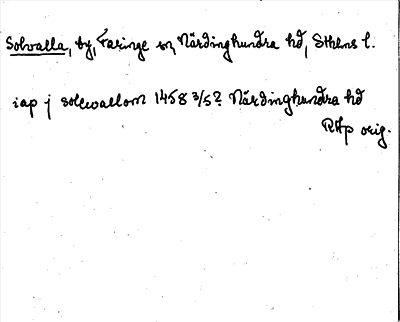 Solvalla, by, Faringe sn, Närdinghundra hd, Sthlms l.
iap j solewallom 1458 3/5? Närdinghundra hd
RAp orig.